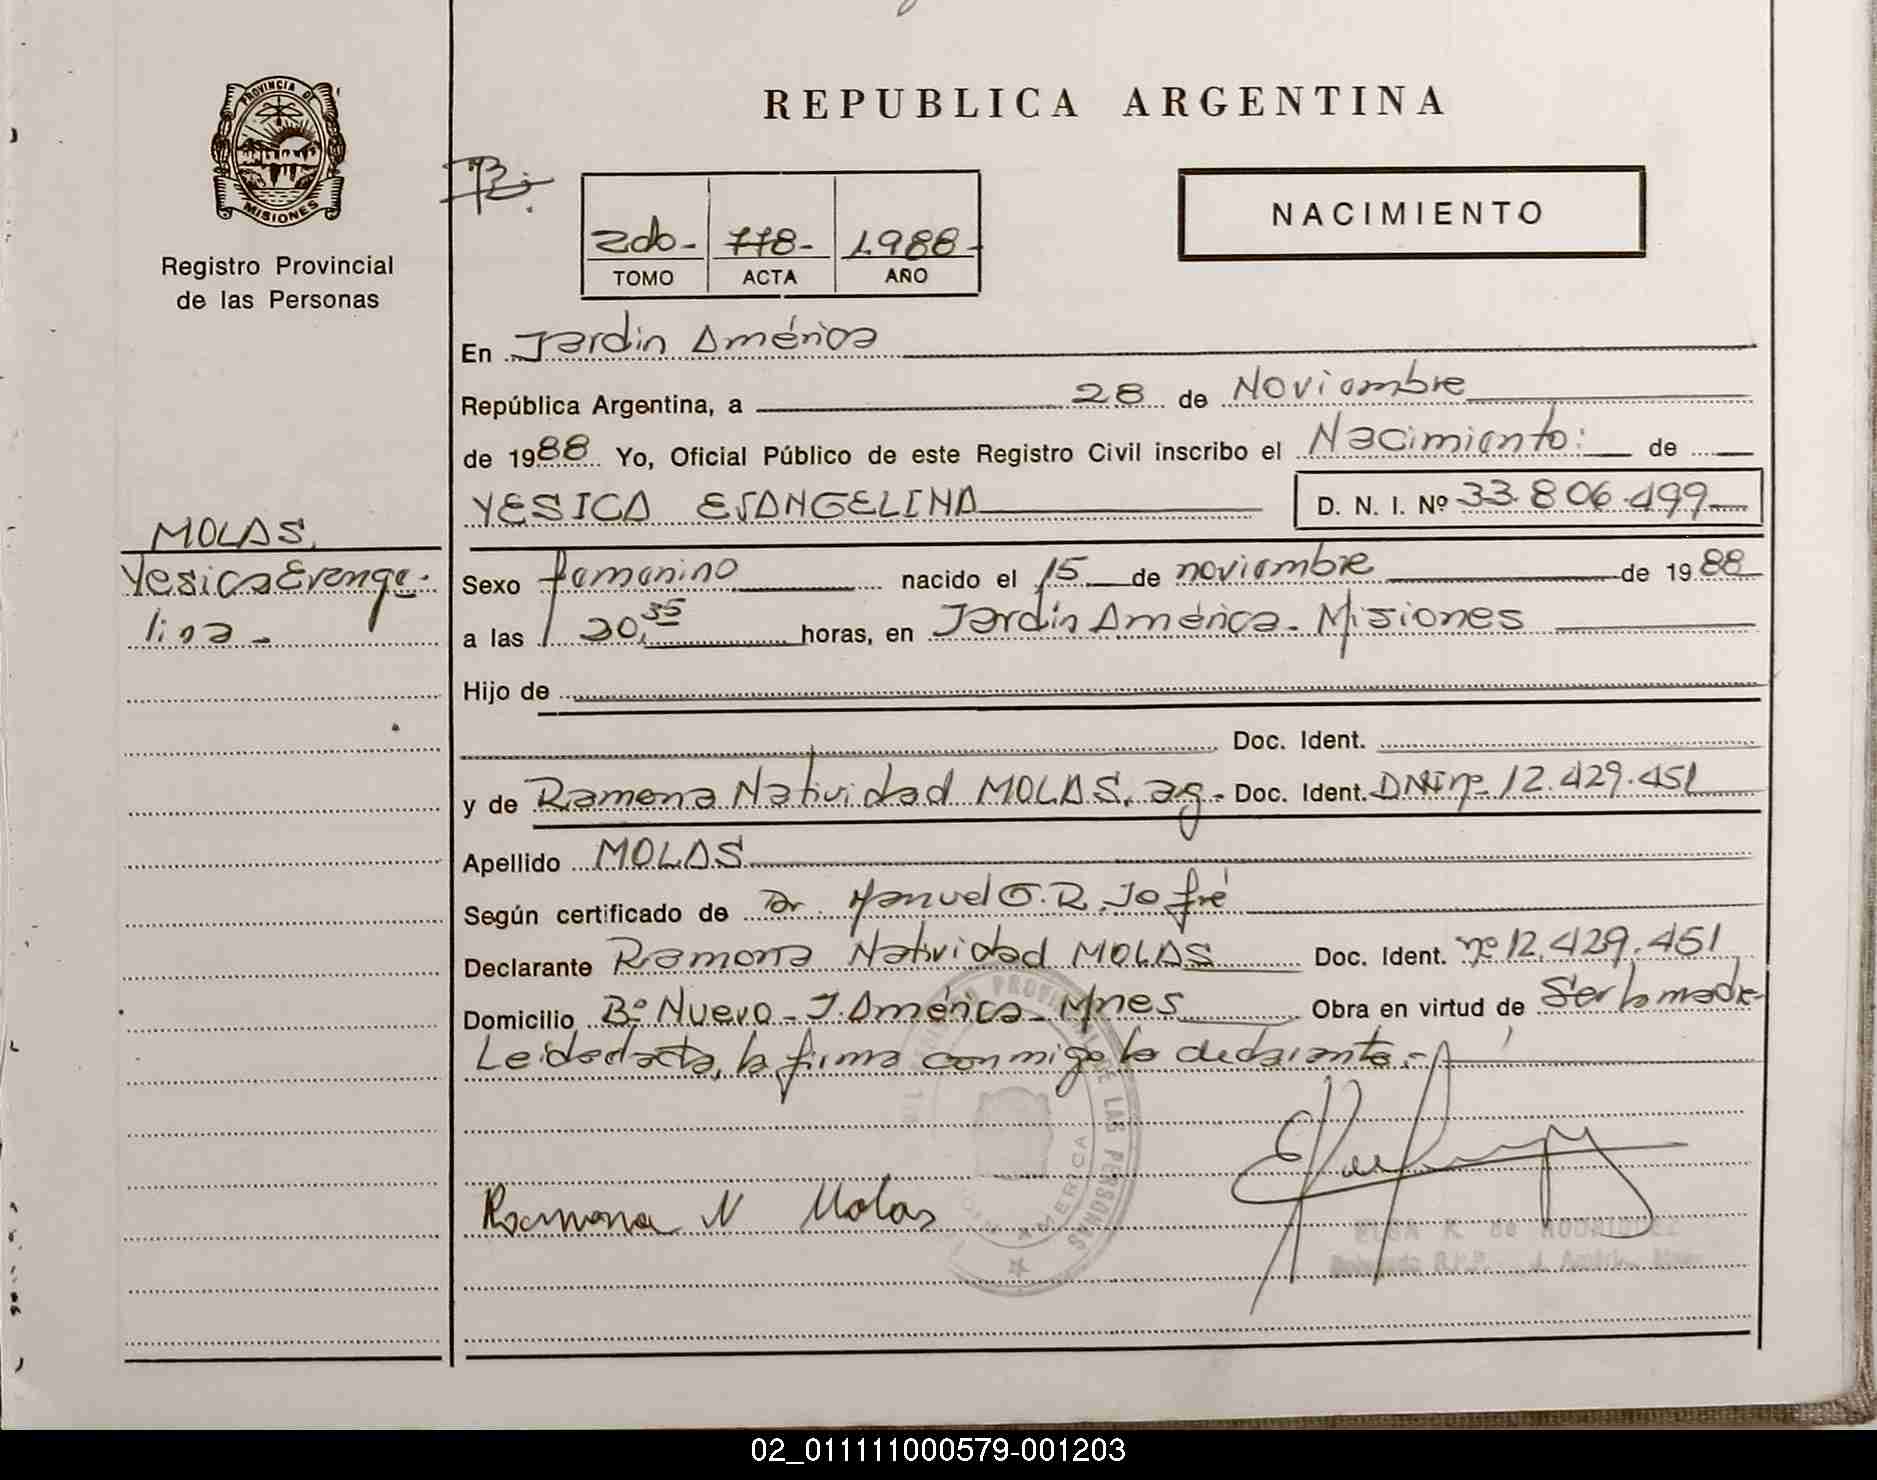 REPUBLICA ARGENTINA
PROVINCIA DE
MISIONES
Registro Provincial
de las Personas
NACIMIENTO
2do- 778- 1988-
TOMO ACTA AÑO
En Jardin América
República Argentina, a 28 de Noviembre
de 1988 Yo, Oficial Público de este Registro Civil inscribo el Nacimiento: de
YESICA EVANGELINA D. N. I. Nº 33.806.499
MOLAS
Yesica Evange-
lina-
Sexo femenino nacido el 15 de noviembre de 1988
a las 20,35 horas, en Jardín América- Misiones
Hijo de
Doc. Ident.
y de Ramona Natividad MOLAS, ag- Doc. Ident. DNI nº 12.429.451
Apellido MOLAS
Según certificado de Dr. Manuel O.R. Jofré
Declarante Ramona Natividad MOLAS Doc. Ident. nº 12.429.451
Domicilio Bº Nuevo- J. América- Mnes Obra en virtud de Ser la madre
Leida el acta, la firma conmigo la declarante.-
PROVINCIAL DE LAS PERSONAS
AMERICA
Ramona N Molas
ELSA R. de RODRIGUEZ
02_011111000579-001203